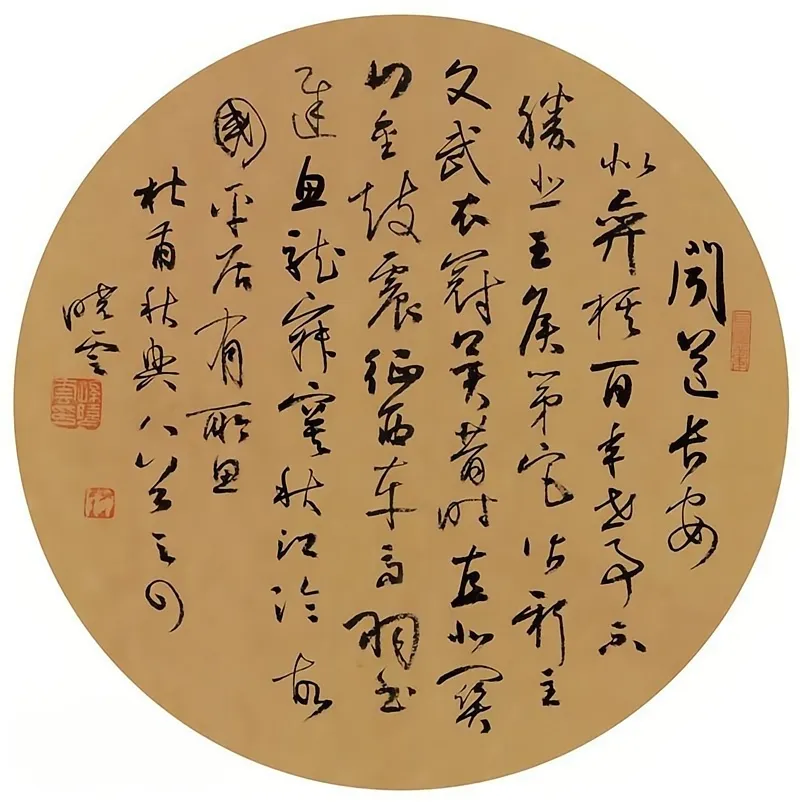 聞道長安
似弈棋百年世事不
勝悲王侯第宅皆新主
文武衣冠異昔時直北關
山金鼓震征西車馬羽書
遲魚龍寂寞秋江冷故
國平居有所思
杜甫秋興八首之四
曉雲